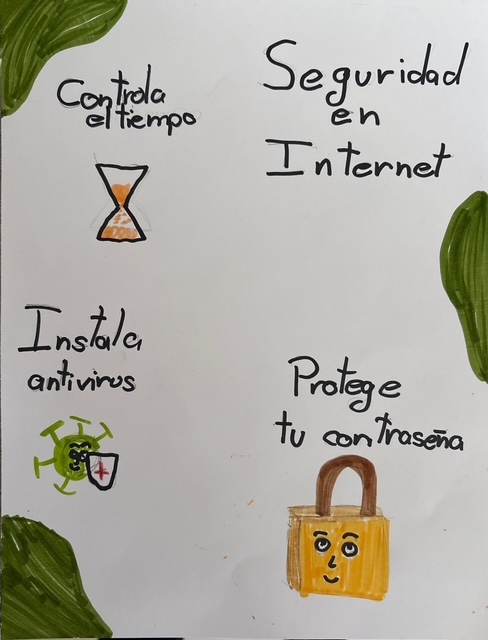 Seguridad
en
Internet
Controla
el tiempo
Instala
antivirus
Protege
tu contraseña